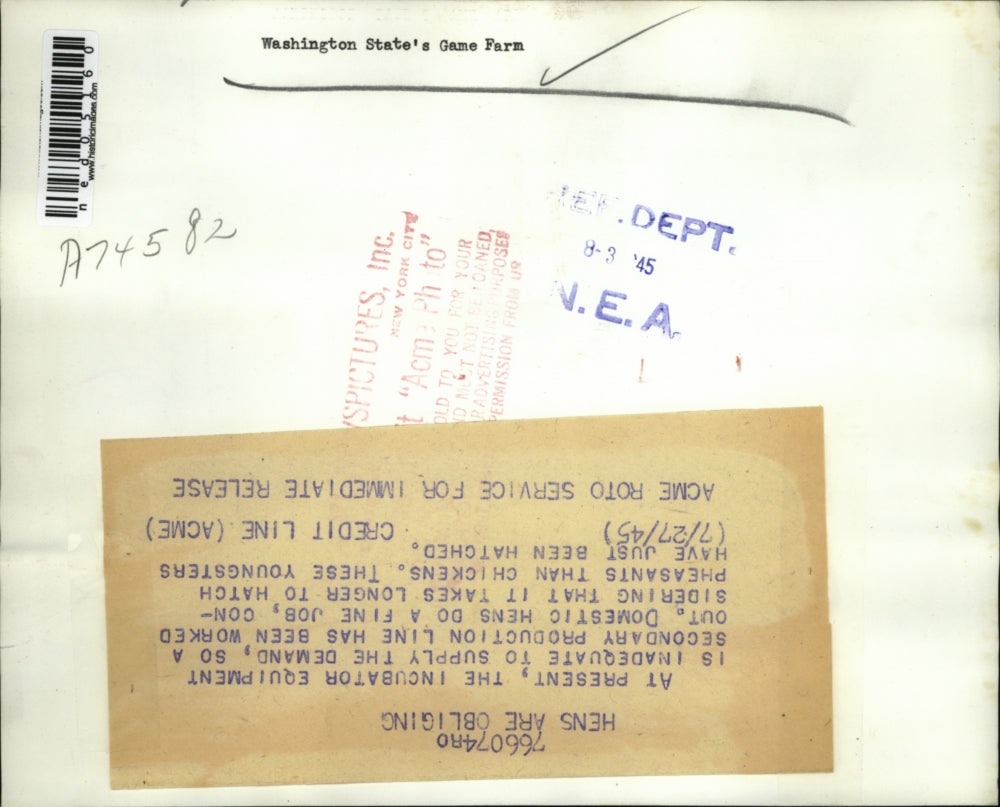 Washington State's Game Farm
ned05160
www.historicimages.com
A74582
REF. DEPT.
8-3 '45
N.E.A.
NEWSPICTURES, Inc.
NEW YORK CITY
"Acme Photo"
OLD TO YOU FOR YOUR
ND MUST NOT BE LOANED,
R ADVERTISING PURPOSES
PERMISSION FROM US
766074RO
HENS ARE OBLIGING
AT PRESENT, THE INCUBATOR EQUIPMENT
IS INADEQUATE TO SUPPLY THE DEMAND, SO A
SECONDARY PRODUCTION LINE HAS BEEN WORKED
OUT. DOMESTIC HENS DO A FINE JOB, CON-
SIDERING THAT IT TAKES LONGER TO HATCH
PHEASANTS THAN CHICKENS. THESE YOUNGSTERS
HAVE JUST BEEN HATCHED.
(7/27/45) CREDIT LINE (ACME)
ACME ROTO SERVICE FOR IMMEDIATE RELEASE